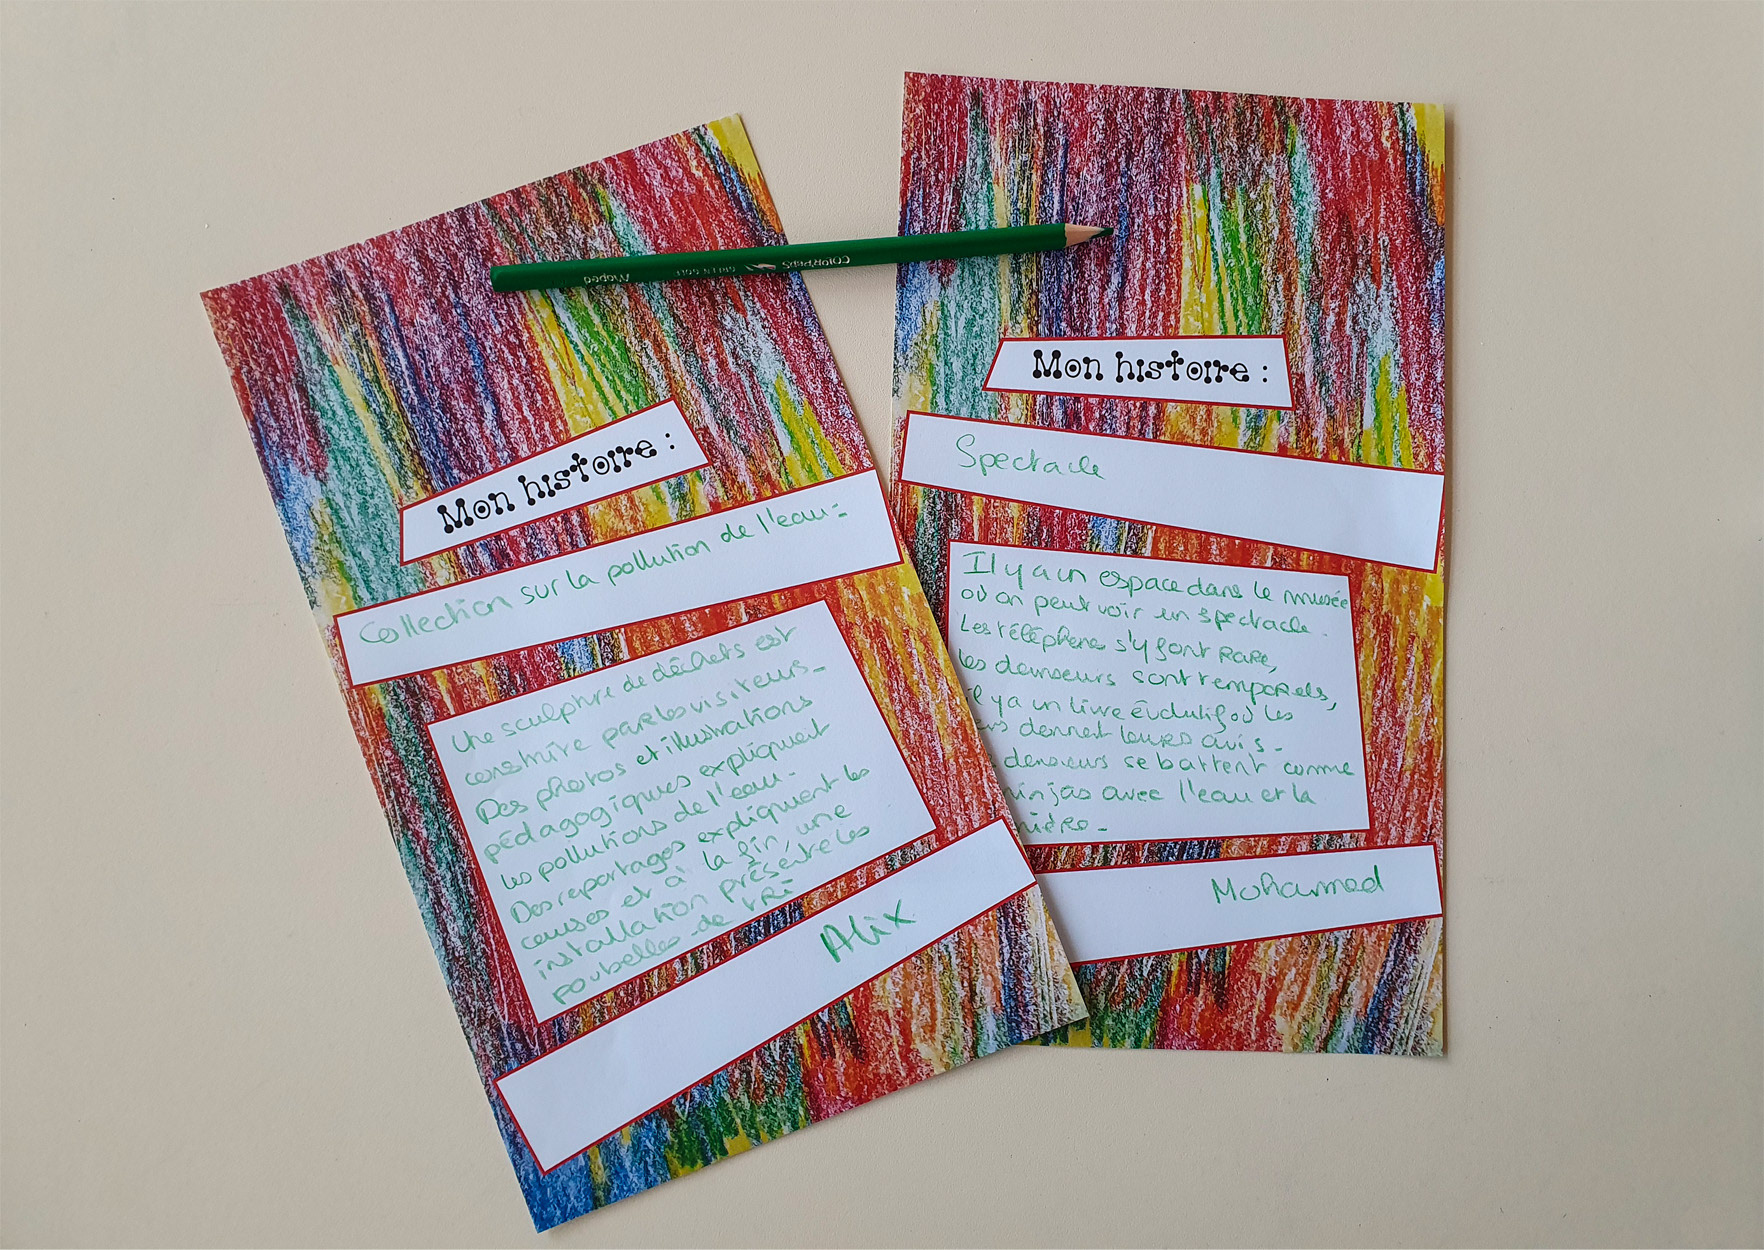 Maped
GREEN GOLF
COLOR'PEPS
Mon histoire :
Collection sur la pollution de l'eau :
Une sculpture de déchets est
construite par les visiteurs.
Des photos et illustrations
pédagogiques expliquent
les pollutions de l'eau.
Des reportages expliquent les
causes et à la fin, une
installation présente les
poubelles de
Alix
Mon histoire :
Spectacle
Il y a un espace dans le musée
où on peut voir un spectacle.
Les téléphone s'y font rare,
les danseurs sont temporels,
il y a un livre évolutif où les
donnent leurs avis.
danseurs se battent comme
ninjas avec l'eau et la
Mohamed